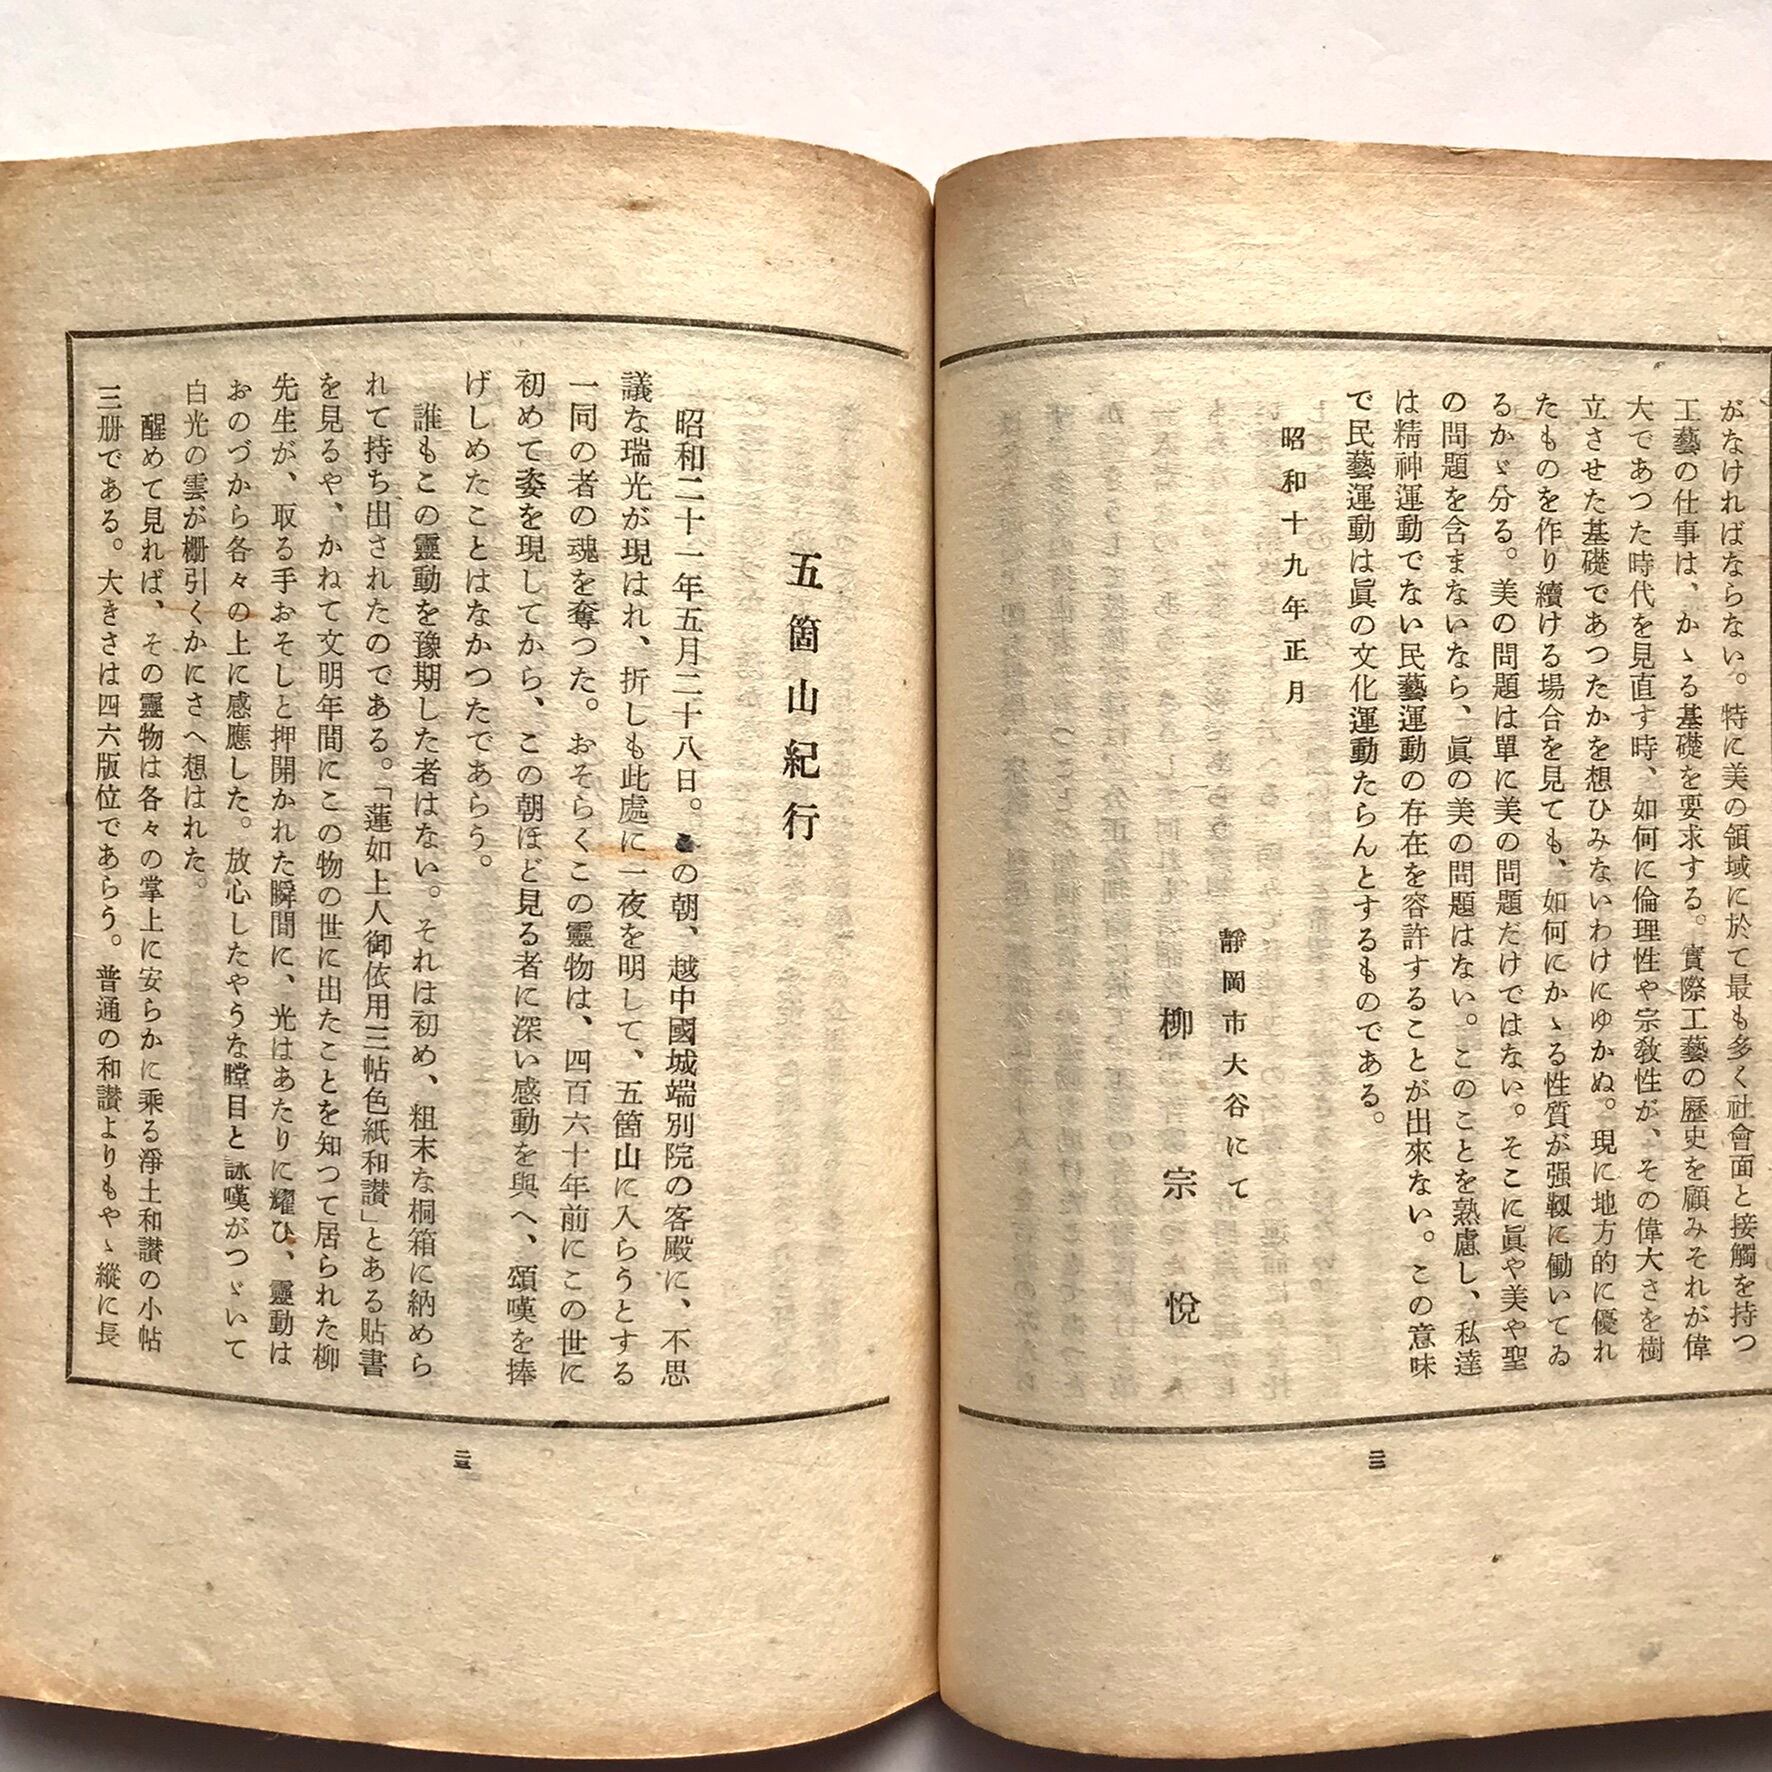 がなければならない。特に美の領域に於て最も多く社會面と接觸を持つ
工藝の仕事は、かゝる基礎を要求する。實際工藝の歷史を顧みそれが偉
大であつた時代を見直す時、如何に倫理性や宗敎性が、その偉大さを樹
立させた基礎であつたかを想ひみないわけにゆかぬ。現に地方的に優れ
たものを作り續ける場合を見ても、如何にかゝる性質が强靱に働いてゐ
るかゞ分る。美の問題は單に美の問題だけではない。そこに眞や美や聖
の問題を含まないなら、眞の美の問題はない。このことを熟慮し、私達
は精神運動でない民藝運動の存在を容許することが出來ない。この意味
で民藝運動は眞の文化運動たらんとするものである。
昭和十九年正月
靜岡市大谷にて
柳宗悅
二二
五箇山紀行
昭和二十一年五月二十八日。の朝、越中國城端別院の客殿に、不思
議な瑞光が現はれ、折しも此處に一夜を明して、五箇山に入らうとする
一同の者の魂を奪つた。おそらくこの靈物は、四百六十年前にこの世に
初めて姿を現してから、この朝ほど見る者に深い感動を與へ、頌嘆を捧
げしめたことはなかつたであらう。
誰もこの靈動を豫期した者はない。それは初め、粗末な桐箱に納めら
れて持ち出されたのである。「蓮如上人御依用三帖色紙和讃」とある貼書
を見るや、かねて文明年間にこの物の世に出たことを知つて居られた柳
先生が、取る手おそしと押開かれた瞬間に、光はあたりに耀ひ、靈動は
おのづから各々の上に感應した。放心したやうな瞠目と詠嘆がつゞいて
白光の雲が棚引くかにさへ想はれた。
醒めて見れば、その靈物は各々の掌上に安らかに乘る淨土和讃の小帖
三册である。大きさは四六版位であらう。普通の和讃よりもやゝ縱に長
二三